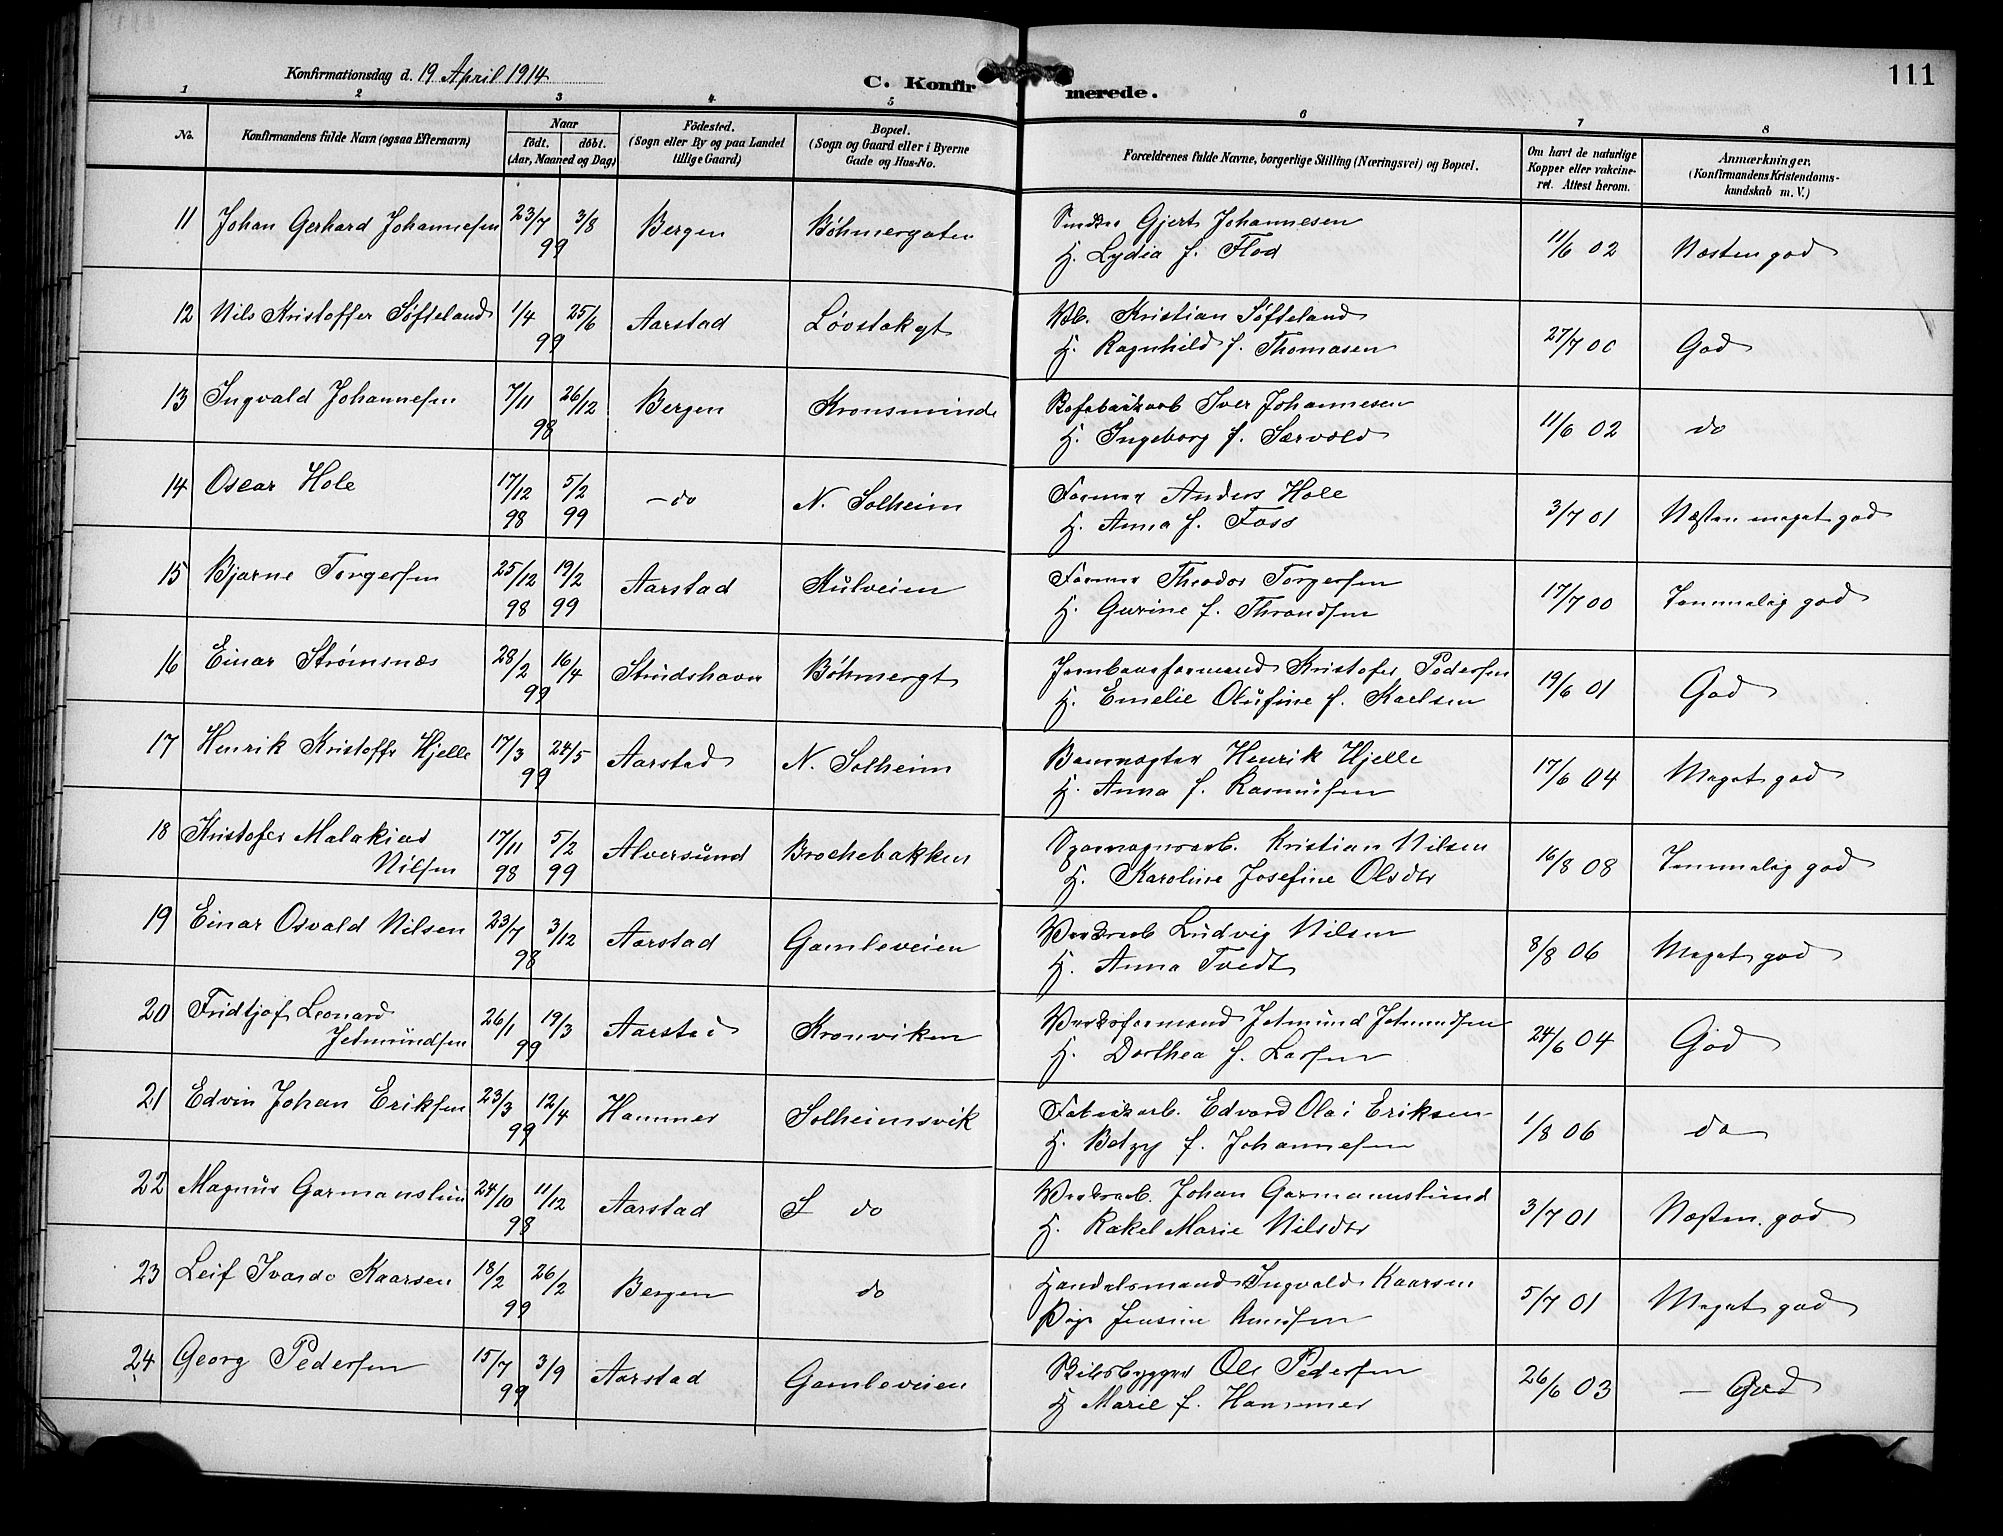 Konfirmationsdag d. 19 April 1914
C. Konfirmerede.
111
1 2 3 4 5 6 7 8
No.
Konfirmandens fulde Navn (ogsaa Efternavn)
Naar
födt. döbt.
(Aar, Maaned og Dag)
Födested.
(Sogn eller By og paa Landet
tillige Gaard)
Bopæl.
(Sogn og Gaard eller i Byerne
Gade og Hus-No.
Forældrenes fulde Navne, borgerlige Stilling (Næringsvei) og Bopæl.
Om havt de naturlige
Kopper eller vakcine-
ret. Attest herom.
Anmærkninger.
(Konfirmandens Kristendoms-
kundskab m. V.)
11 Johan Gerhard Johannesen 23/7 3/8 99 Bergen Böhmergaten
Gjert Johannesen
H. Lydia f. Flod
11/6 02 Næsten god
12 Nils Kristoffer Søfteland 1/4 25/6 99 Aarstad Løvstakgt
Kristian Søfteland
H. Ragnhild f. Thomasen
27/7 00 God
13 Ingvald Johannesen 7/11 26/12 98 Bergen Kronsminde
Iver Johannesen
H. Ingeborg f. Særvold
11/6 02 do
14 Oscar Hole 17/12 98 5/2 99 - do N. Solheim
Former Anders Hole
H. Anna f. Foss
3/7 01 Næsten meget god
15 Bjarne Torgersen 25/12 98 19/2 99 Aarstad Kulveien
Former Theodor Torgersen
H. Gurine f. Throndsen
17/7 00 Temmelig god
16 Einar Strømsnæs 28/2 16/4 99 Strudshavn Böhmergt
Jernbaneformand Kristofer Pedersen
H. Emelie Olufine f. Karlsen
19/6 01 God
17 Henrik Kristoffer Hjelle 17/3 24/5 99 Aarstad N. Solheim
Banevogter Henrik Hjelle
H. Anna f. Rasmusen
17/6 04 Meget god
18 Kristofer Malakias
Nilsen 17/11 98 5/2 99 Alversund Brochebakken
Sporvognsarb. Kristian Nilsen
H. Karoline Josefine Olsdtr
16/8 08 Temmelig god
19 Einar Osvald Nilsen 23/7 3/12 98 Aarstad Gamleveien
Verksarb Ludvig Nilsen
H. Anna Tvedt
8/8 06 Meget god
20 Fridtjof Leonard
Jetmundsen 26/1 19/3 99 Aarstad Kronviken
Verksformand Jetmund Jetmundsen
H. Dorthea f. Larsen
24/6 04 God
21 Edvin Johan Eriksen 23/3 12/4 99 Hammer Solheimsvik
Fabrikarb. Edvard Olai Eriksen
H. Betzy f. Johannesen
1/8 06 do
22 Magnus Garmanslund 24/10 11/12 98 Aarstad S do
Verksarb. Johan Garmannslund
H. Rakel Marie Nilsdtr
3/7 01 Næsten god
23 Leif Ivardo Kaarsen 18/2 26/2 99 Bergen do
Handelsmand Ingvald Kaarsen
Pige Jensine Knudsen
5/7 01 Meget god
24 Georg Pedersen 15/7 3/9 99 Aarstad Gamleveien
Skibsbygger Ole Pedersen
H Marie f. Hammer
26/6 03 - God